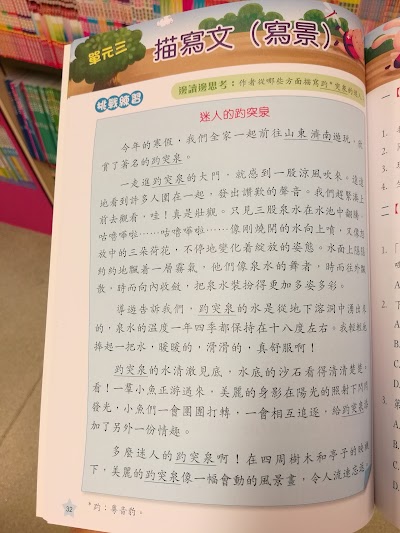 單元三
描寫文（寫景）
邊讀邊思考：作者從哪些方面描寫趵*突泉的
挑戰練習
迷人的趵突泉
今年的寒假，我們全家一起前往山東濟南遊玩，欣
賞了著名的趵突泉。
一走進趵突泉的大門，就感到一股涼風吹來。遠遠
地看到許多人圍在一起，發出讚歎的聲音。我們趕緊湊上
前去觀看，哇！真是壯觀。只見三股泉水在水池中翻騰，
咕嚕嘟啦……咕嚕嘟啦……像剛燒開的水向上噴，又像怒
放中的三朵荷花，不停地變化着綻放的姿態。水面上隱隱
約約地飄着一層霧氣，他們像泉水的舞者，時而往外飄
散，時而向內收斂，把泉水裝扮得更加多姿多彩。
導遊告訴我們，趵突泉的水是從地下溶洞中湧出來
的，泉水的溫度一年四季都保持在十八度左右。我輕輕地
捧起一把水，暖暖的，滑滑的，真舒服啊！
趵突泉的水清澈見底，水底的沙石看得清清楚楚。
看！一羣小魚正游過來，美麗的身影在陽光的照射下閃閃
發光，小魚們一會團團打轉，一會相互追逐，給趵突泉添
加了另外一份情趣。
多麼迷人的趵突泉啊！在四周樹木和亭子的映襯
下，美麗的趵突泉像一幅會動的風景畫，令人流連忘返。
32
*趵：粵音豹。